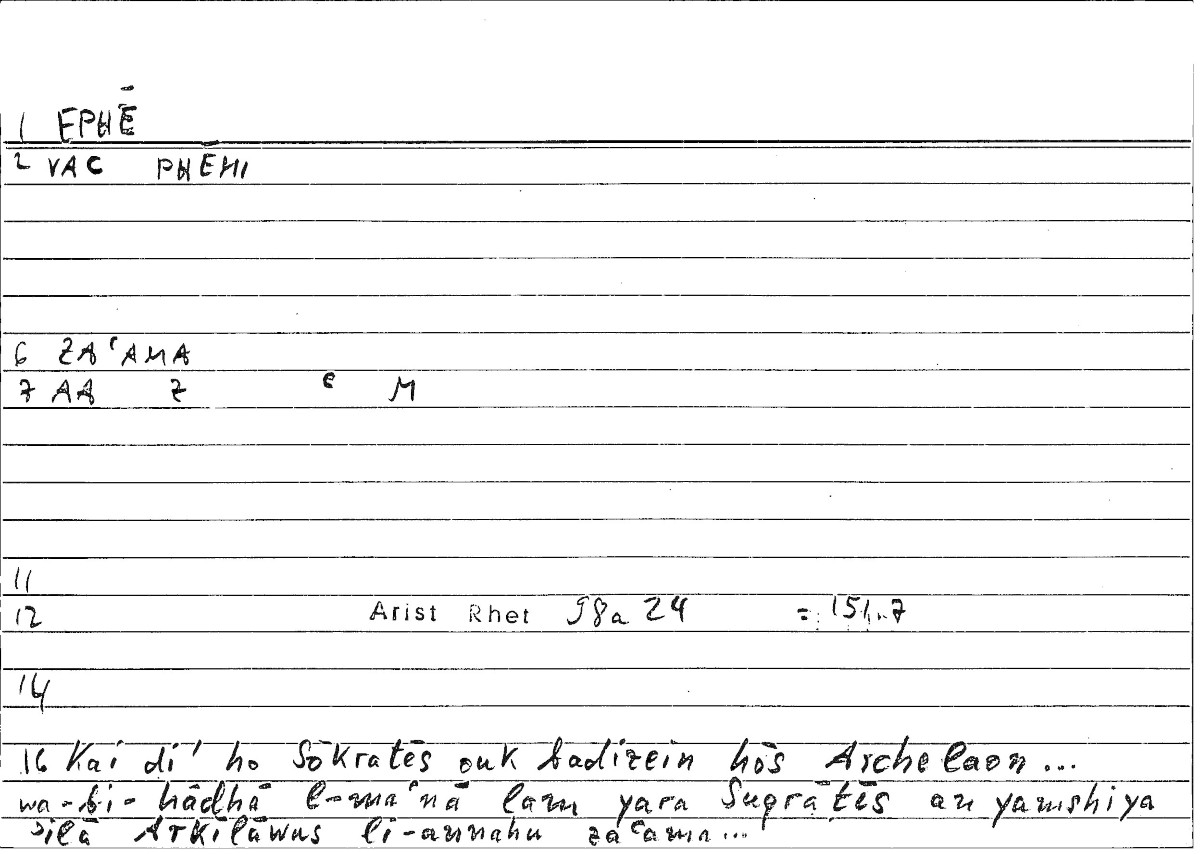 1 EPHĒ
2 VAC PHĒMI
6 ZAʿAMA
7 AA Z ʿ M
11
12 Arist Rhet 98a 24 = 151.7
14
16 Kai di' ho Sōkratēs ouk badizein hōs Archelaon...
wa-bi-hādhā l-maʿnā lam yara Suqrātēs an yamshiya
ʾilā Arkilāwus li-annahu zaʿama...